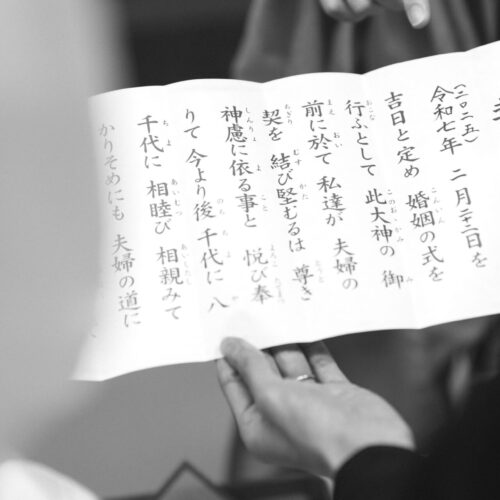 (二〇二五)
令和七年 二月二十二日を
吉日と定め 婚姻の式を
行ふとして 此大神の 御
前に於て 私達が 夫婦の
契を 結び堅むるは 尊き
神慮に依る事と 悦び奉
りて 今より後 千代に 八
千代に 相睦び 相親みて
かりそめにも 夫婦の道に